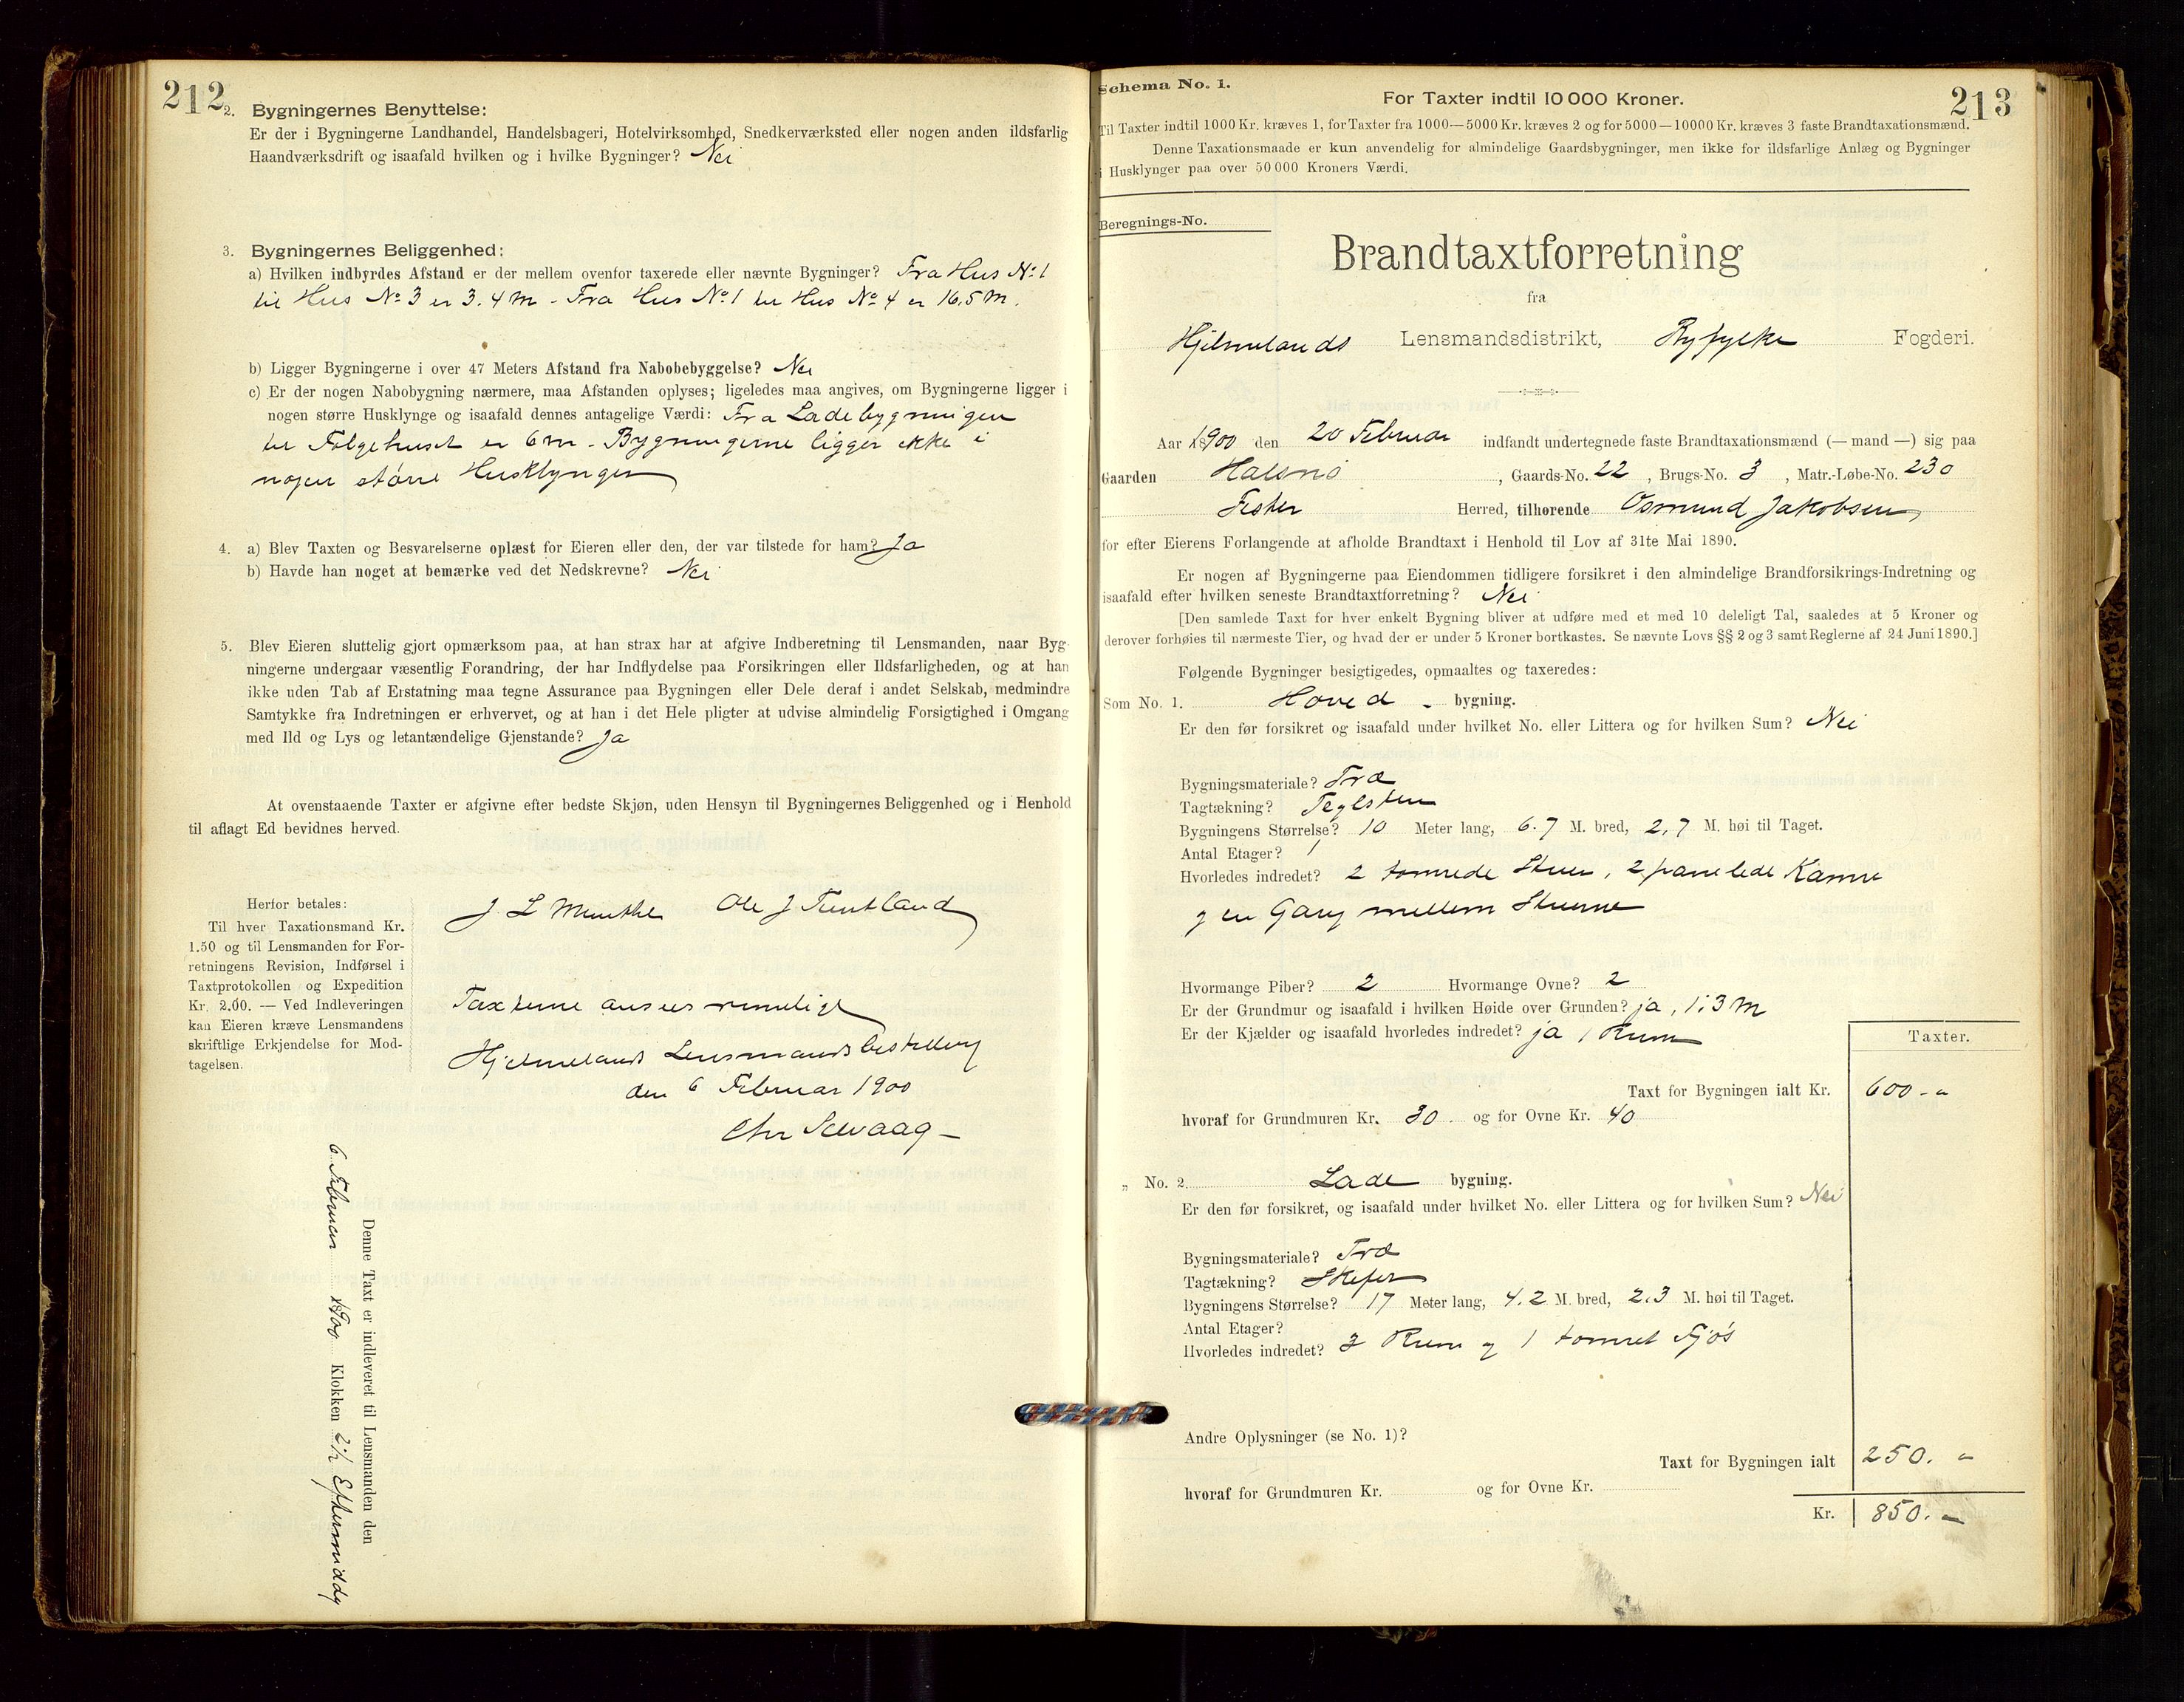 212
2. Bygningernes Benyttelse:
Er der i Bygningerne Landhandel, Handelsbageri, Hotelvirksomhed, Snedkerværksted eller nogen anden ildsfarlig
Haandværksdrift og isaafald hvilken og i hvilke Bygninger? Nei
3. Bygningernes Beliggenhed:
a) Hvilken indbyrdes Afstand er der mellem ovenfor taxerede eller nævnte Bygninger? Fra Hus No 1
til Hus No 3 er 3.4 m - Fra Hus No 1 til Hus No 4 er 16,5 m.
b) Ligger Bygningerne i over 47 Meters Afstand fra Nabobebyggelse? Nei
c) Er der nogen Nabobygning nærmere, maa Afstanden oplyses; ligeledes maa angives, om Bygningerne ligger i
nogen større Husklynge og isaafald dennes antagelige Værdi: Fra Ladebygningen
til Følgehuset er 6 m - Bygningerne ligger ikke i
nogen større Husklynger
4. a) Blev Taxten og Besvarelserne oplæst for Eieren eller den, der var tilstede for ham? Ja
b) Havde han noget at bemærke ved det Nedskrevne? Nei
5. Blev Eieren sluttelig gjort opmærksom paa, at han strax har at afgive Indberetning til Lensmanden, naar Byg-
ningerne undergaar væsentlig Forandring, der har Indflydelse paa Forsikringen eller Ildsfarligheden, og at han
ikke uden Tab af Erstatning maa tegne Assurance paa Bygningen eller Dele deraf i andet Selskab, medmindre
Samtykke fra Indretningen er erhvervet, og at han i det Hele pligter at udvise almindelig Forsigtighed i Omgang
med Ild og Lys og letantændelige Gjenstande? Ja
At ovenstaaende Taxter er afgivne efter bedste Skjøn, uden Hensyn til Bygningernes Beliggenhed og i Henhold
til aflagt Ed bevidnes herved.
J L Ole J
Herfor betales:
Til hver Taxationsmand Kr.
1.50 og til Lensmanden for For-
retningens Revision, Indførsel i
Taxtprotokollen og Expedition
Kr. 2.00. — Ved Indleveringen
kan Eieren kræve Lensmandens
skriftlige Erkjendelse for Mod-
tagelsen.
Taxterne ansees rimelige
Hjelmelands Lensmandsbestilling
den 6 Februar 1900
Chr Selvaag
Denne Taxt er indleveret til Lensmanden den
6 Februar 1900 Klokken 2 1/2 Eftermiddag
213
Schema No. 1.
For Taxter indtil 10 000 Kroner.
Til Taxter indtil 1000 Kr. kræves 1, for Taxter fra 1000—5000 Kr. kræves 2 og for 5000—10000 Kr. kræves 3 faste Brandtaxationsmænd.
Denne Taxationsmaade er kun anvendelig for almindelige Gaardsbygninger, men ikke for ildsfarlige Anlæg og Bygninger
i Husklynger paa over 50 000 Kroners Værdi.
Beregnings-No.
Brandtaxtforretning
fra
Hjelmelands Lensmandsdistrikt, Ryfylke Fogderi.
Aar 1900 den 20 Februar indfandt undertegnede faste Brandtaxationsmænd (— mand —) sig paa
Gaarden Halsnø, Gaards-No. 22, Brugs-No. 3, Matr.-Løbe-No. 230
Fister Herred, tilhørende Osmund Jakobsen,
for efter Eierens Forlangende at afholde Brandtaxt i Henhold til Lov af 31te Mai 1890.
Er nogen af Bygningerne paa Eiendommen tidligere forsikret i den almindelige Brandforsikrings-Indretning og
isaafald efter hvilken seneste Brandtaxtforretning? Nei
[Den samlede Taxt for hver enkelt Bygning bliver at udføre med et med 10 deleligt Tal, saaledes at 5 Kroner og
derover forhøies til nærmeste Tier, og hvad der er under 5 Kroner bortkastes. Se nævnte Lovs §§ 2 og 3 samt Reglerne af 24 Juni 1890.]
Følgende Bygninger besigtigedes, opmaaltes og taxeredes:
Som No. 1. Hoved - bygning.
Er den før forsikret og isaafald under hvilket No. eller Littera og for hvilken Sum? Nei
Bygningsmateriale? Træ
Tagtækning? Teglsten
Bygningens Størrelse? 10 Meter lang, 6.7 M. bred, 2,7 M. høi til Taget.
Antal Etager? 1
Hvorledes indredet? 2 tømrede Stuer, 2 panelede Kamre
og en Gang mellem Stuerne
Hvormange Piber? 2 Hvormange Ovne? 2
Er der Grundmur og isaafald i hvilken Høide over Grunden? ja, 1,3 m
Er der Kjælder og isaafald hvorledes indredet? ja 1 Rum
Taxter.
Taxt for Bygningen ialt Kr. 600 - "
hvoraf for Grundmuren Kr. 30 - og for Ovne Kr. 40
" No. 2. Lade bygning.
Er den før forsikret, og isaafald under hvilket No. eller Littera og for hvilken Sum? Nei
Bygningsmateriale? Træ
Tagtækning? Skifer
Bygningens Størrelse? 17 Meter lang, 4.2 M. bred, 2.3 M. høi til Taget.
Antal Etager?
Hvorledes indredet? 3 Rum og 1 tømret Fjøs
Andre Oplysninger (se No. 1)?
Taxt for Bygningen ialt 250. "
hvoraf for Grundmuren Kr. og for Ovne Kr.
Kr. 850. -